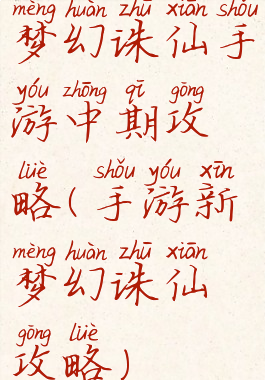 mèng huàn zhū xiān shǒu
梦幻诛仙手
yóu zhōng qī gōng
游中期攻
lüè shǒu yóu xīn
略(手游新
mèng huàn zhū xiān
梦幻诛仙
gōng lüè
攻略)